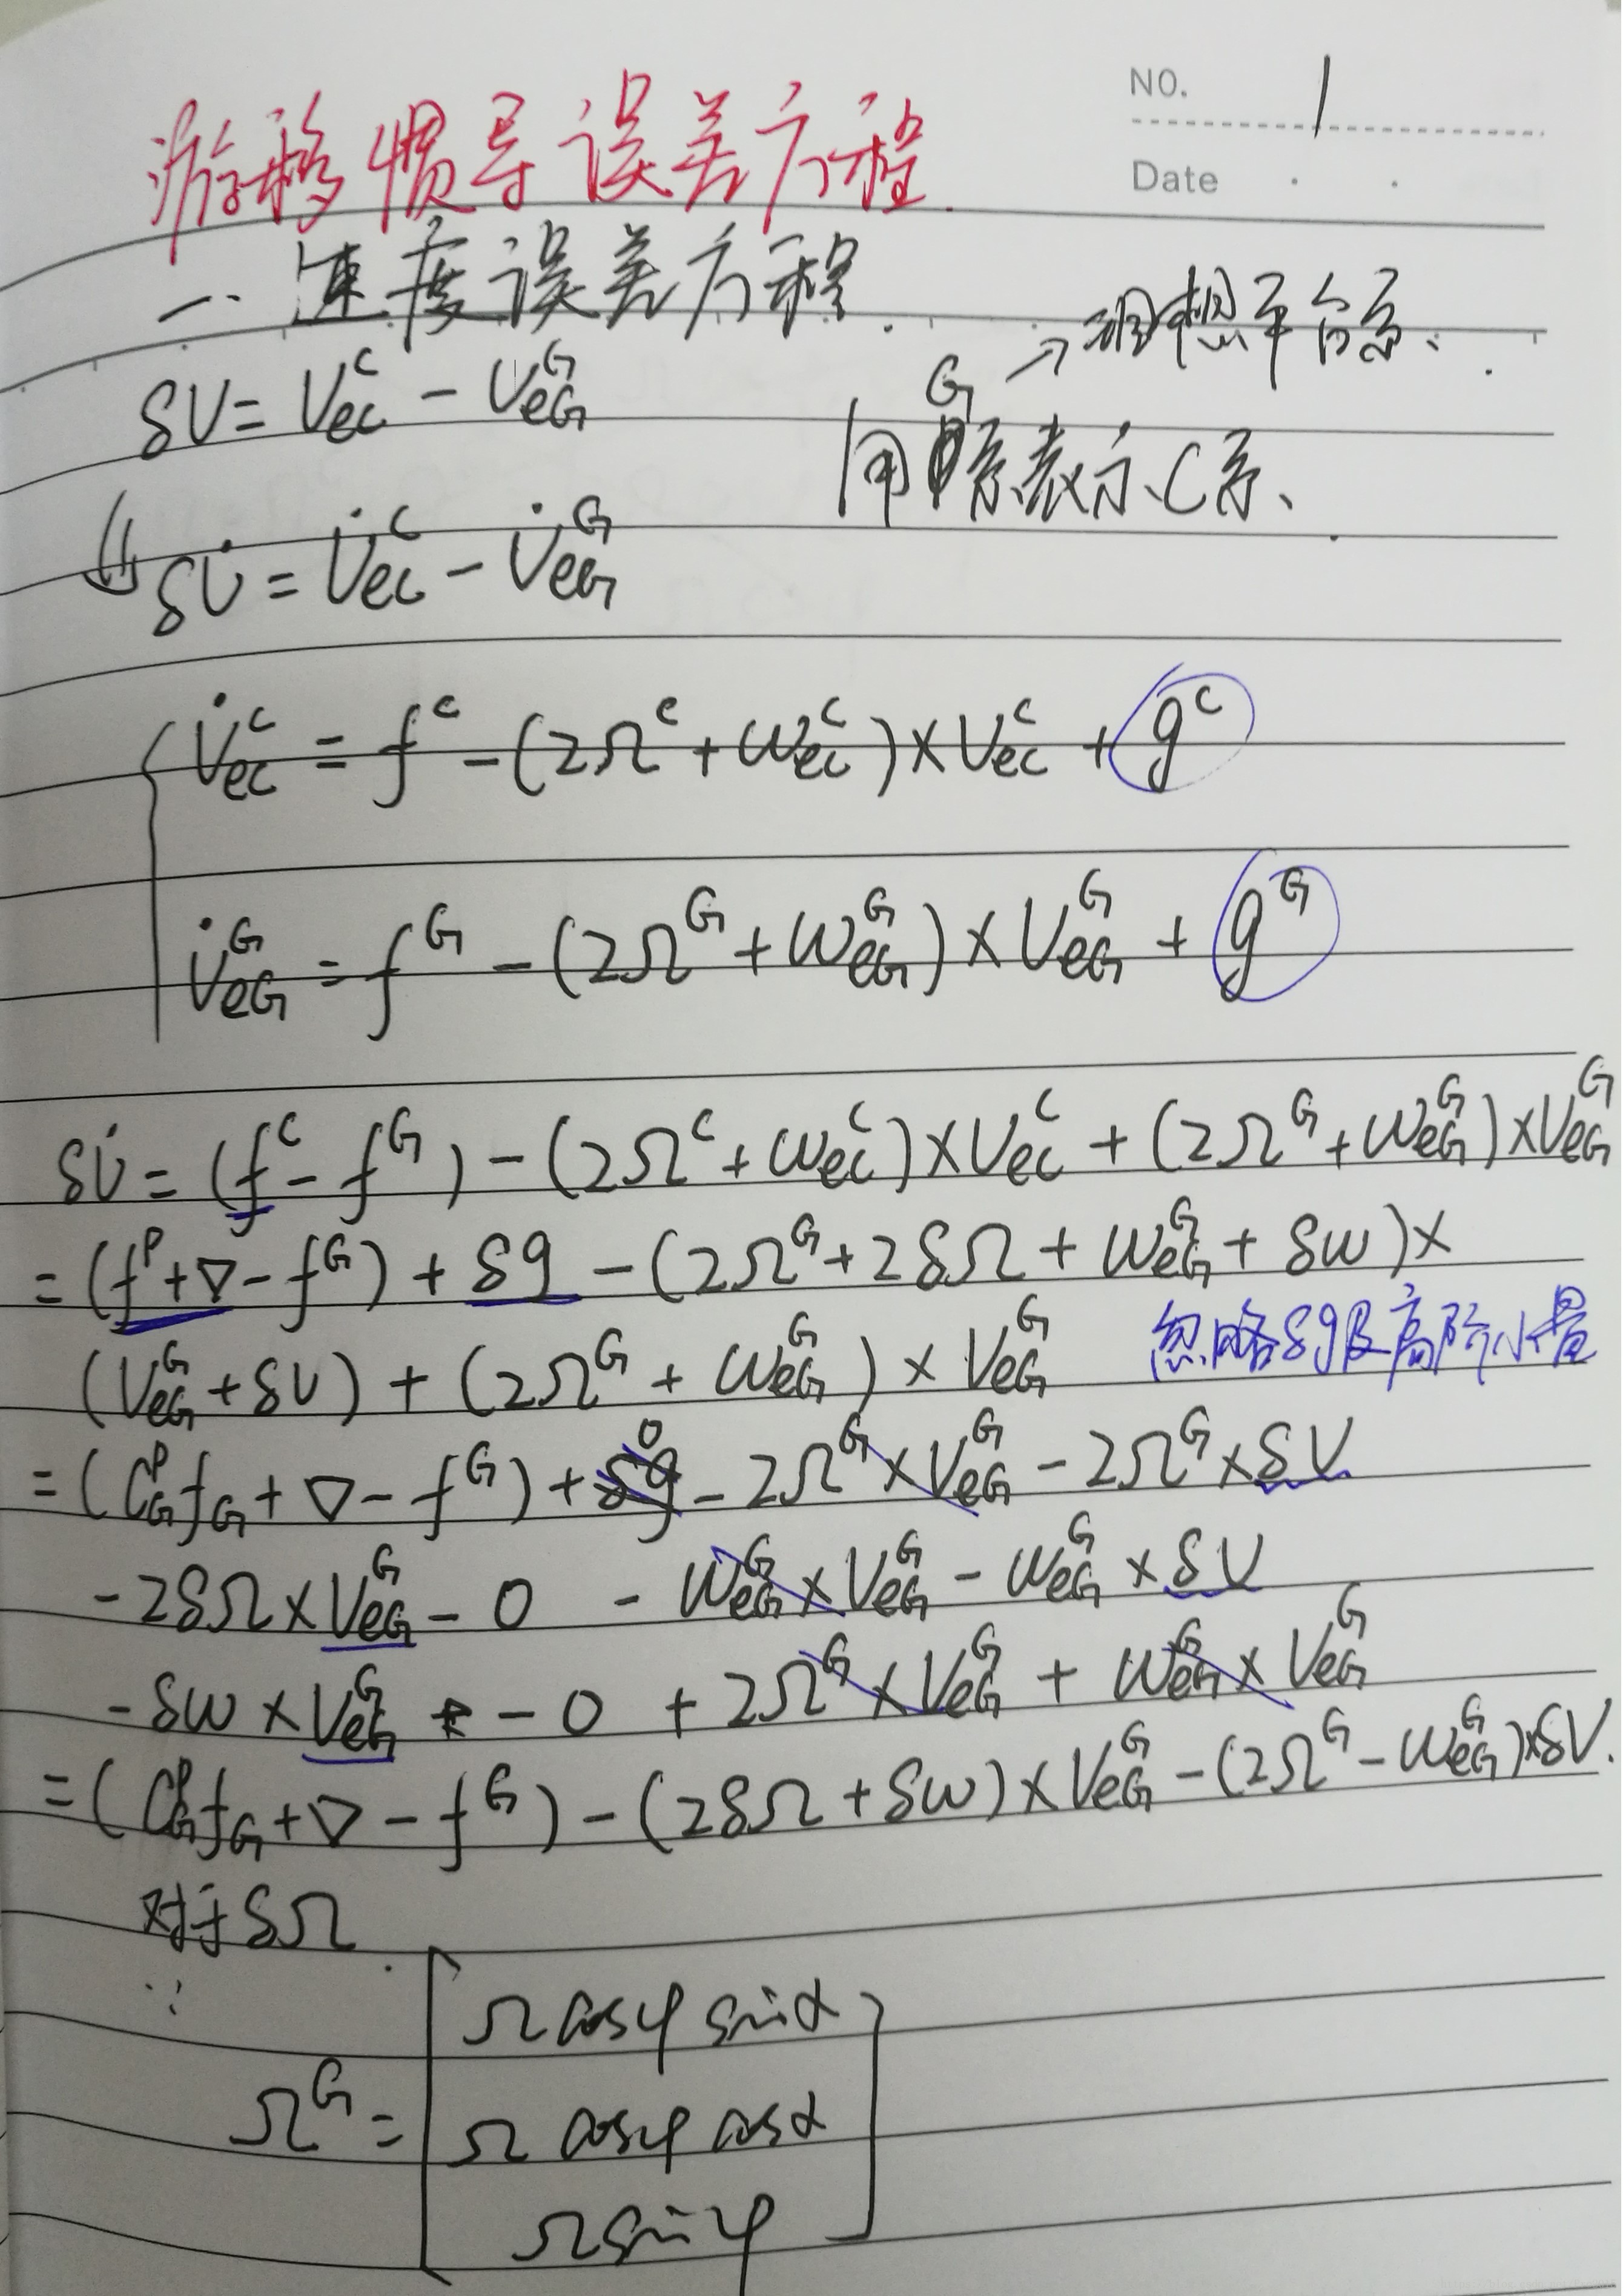 NO. 1
Date
游移惯导误差方程.
一. 速度误差方程.
δV = V_{ec}^{c} - V_{eG}^{G}
G → 理想平台系.
用 系表示C系.
⇓ δV̇ = V̇_{ec}^{c} - V̇_{eG}^{G}
V̇_{ec}^{c} = f^{c} - (2Ω^{c} + ω_{ec}^{c}) × V_{ec}^{c} + g^{c}
V̇_{eG}^{G} = f^{G} - (2Ω^{G} + ω_{eG}^{G}) × V_{eG}^{G} + g^{G}
δV̇ = (f^{c} - f^{G}) - (2Ω^{c} + ω_{ec}^{c}) × V_{ec}^{c} + (2Ω^{G} + ω_{eG}^{G}) × V_{eG}^{G}
= (f^{p} + ∇ - f^{G}) + δg - (2Ω^{G} + 2δΩ + ω_{eG}^{G} + δω) ×
(V_{eG}^{G} + δV) + (2Ω^{G} + ω_{eG}^{G}) × V_{eG}^{G} 忽略δg及高阶小量
= (C_{G}^{p} f_{G} + ∇ - f^{G}) + δg^{0} - 2Ω^{G} × V_{eG}^{G} - 2Ω^{G} × δV
- 2δΩ × V_{eG}^{G} - 0 - ω_{eG}^{G} × V_{eG}^{G} - ω_{eG}^{G} × δV
- δω × V_{eG}^{G} - 0 + 2Ω^{G} × V_{eG}^{G} + ω_{eG}^{G} × V_{eG}^{G}
= (C_{G}^{p} f_{G} + ∇ - f^{G}) - (2δΩ + δω) × V_{eG}^{G} - (2Ω^{G} - ω_{eG}^{G}) × δV.
对于δΩ
∵
Ω cosφ sinα
Ω^{G} = Ω cosφ cosα
Ω sinφ